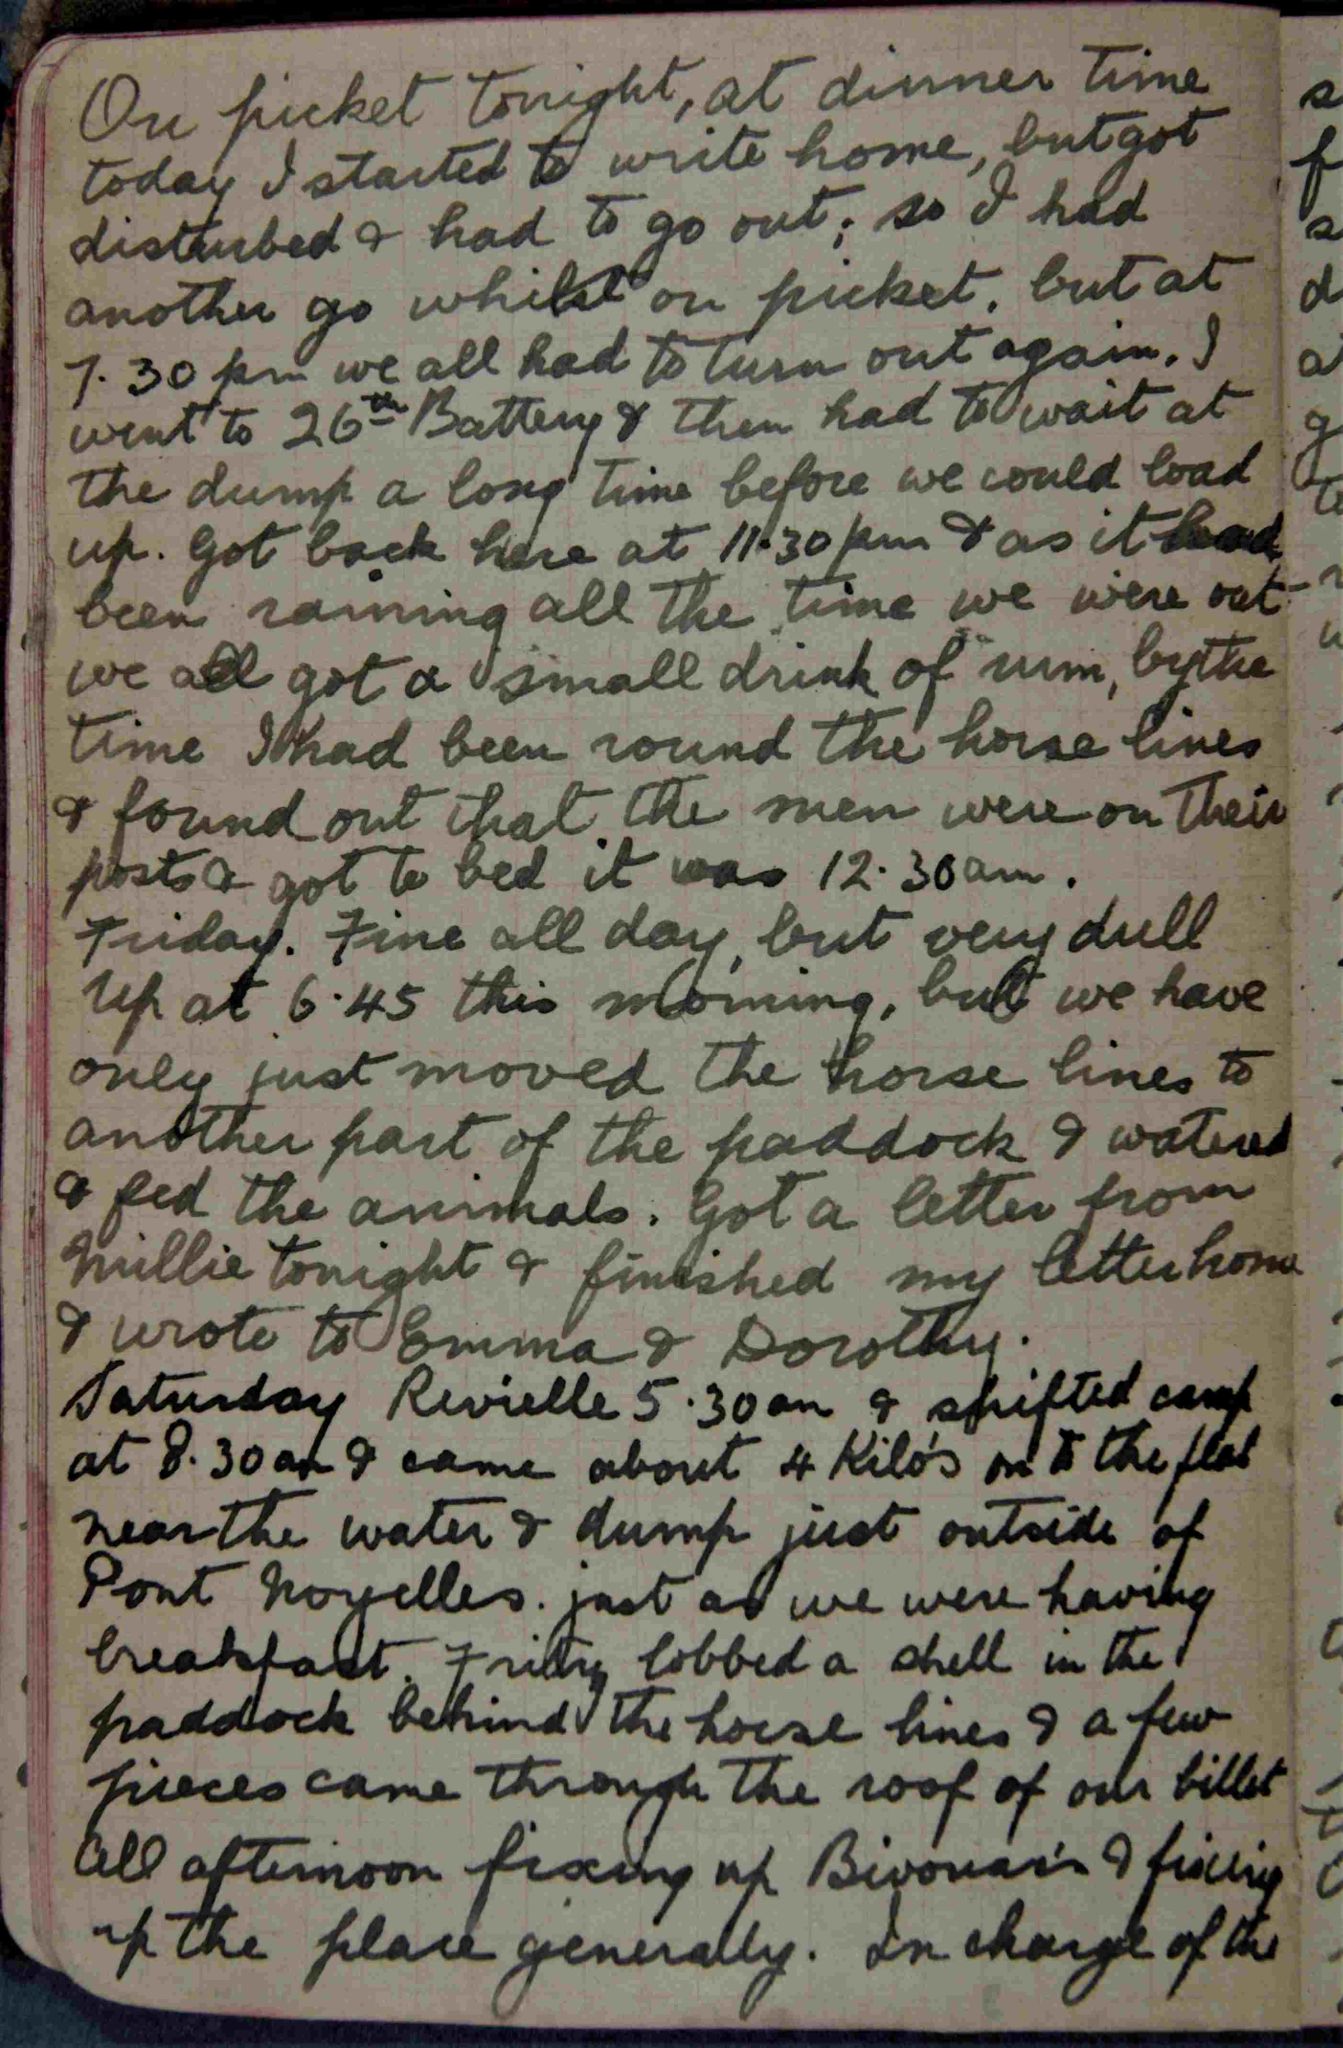 On picket tonight, at dinner time
today I started to write home, but got
disturbed & had to go out; so I had
another go whilst on picket. but at
7.30 pm we all had to turn out again. I
went to 26th Battery & then had to wait at
the dump a long time before we could load
up. Got back here at 11.30 pm & as it had
been raining all the time we were out
we all got a small drink of rum, by the
time I had been round the horse lines
& found out that the men were on their
posts & got to bed it was 12.30 am.
Friday. Fine all day, but very dull
Up at 6.45 this morning, but we have
only just moved the horse lines to
another part of the paddock & watered
& fed the animals. Got a letter from
Millie tonight & finished my letter home
& wrote to Emma & Dorothy.
Saturday Revielle 5.30 am & shifted camp
at 8.30 am & came about 4 Kilo's on to the flat
near the water & dump just outside of
Pont Noyelles. just as we were having
breakfast. Fritz lobbed a shell in the
paddock behind the horse lines & a few
pieces came through the roof of our billet
All afternoon fixing up & fixing
up the place generally. In charge of the